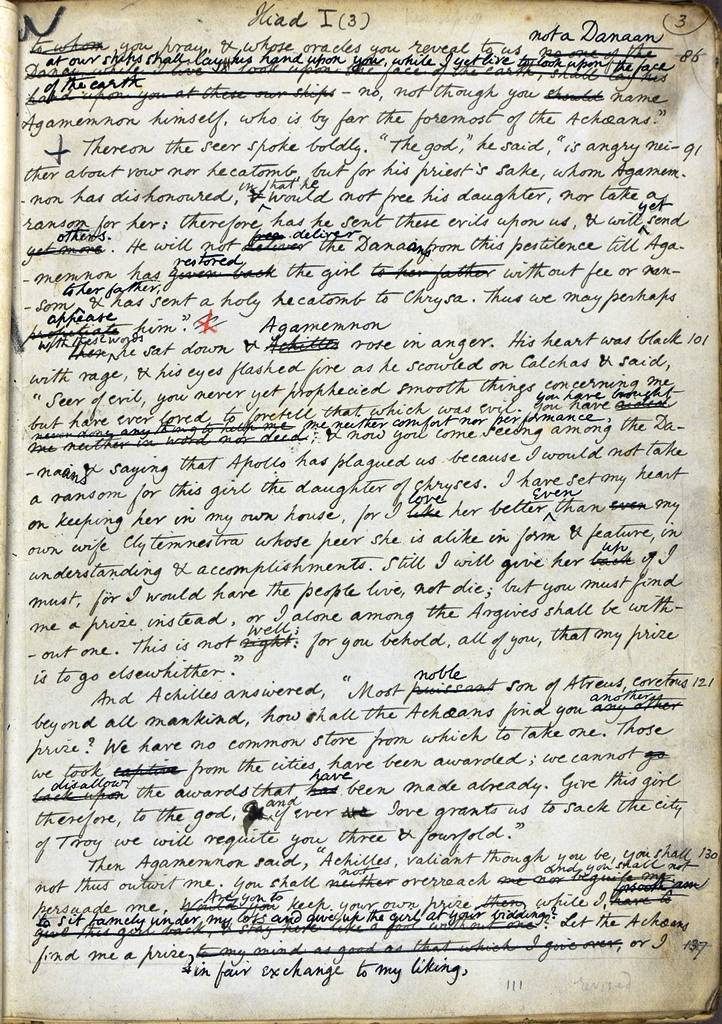 Iliad I (3)
3
not a Danaan
to whom you pray, & whose oracles you reveal to us, no one of the 86
at our ships shall lay his hand upon you, while I yet live to look upon the face
Danaans while I live to look upon the face of the earth, shall lay his
of the earth
hand upon you at these our ships - no, not though you should name
Agamemnon himself, who is by far the foremost of the Achæans."
Thereon the seer spoke boldly. "The god," he said, "is angry nei- 91
ther about vow nor hecatomb, but for his priest's sake, whom Agamem-
-non has dishonoured,
in that he
& would not free his daughter, nor take a
ransom for her: therefore has he sent these evils upon us, & will
yet
send
others.
yet more. He will not
deliver
deliver the Danaans from this pestilence till Aga-
restored
-memnon has given back the girl to her father without fee or ran-
to her father,
-som & has sent a holy hecatomb to Chrysa. Thus we may perhaps
appease
propitiate him."
With these words Agamemnon
he sat down & Achilles rose in anger. His heart was black 101
with rage, & his eyes flashed fire as he scowled on Calchas & said,
"Seer of evil, you never yet prophecied smooth things concerning me
but have ever loved to foretell that which was evil. you have
you have brought
me neither comfort nor performance;
me neither in word nor deed; & now you come seeing among the Da-
-naans & saying that Apollo has plagued us because I would not take
a ransom for this girl the daughter of Chryses. I have set my heart
love Even
on keeping her in my own house, for I like her better than even my
own wife Clytemnestra whose peer she is alike in form & feature, in
understanding & accomplishments. Still I will give her back
up,
if I
must, for I would have the people live, not die; but you must find
me a prize instead, or I alone among the Argives shall be with-
well;
-out one. This is not right: for you behold, all of you, that my prize
is to go elsewhither."
noble
And Achilles answered, "Most puissant son of Atreus, covetous 121
another
beyond all mankind, how shall the Achæans find you any other
prize? We have no common store from which to take one. Those
we took captive from the cities, have been awarded; we cannot go
disallow have
back upon the awards that has been made already. Give this girl
and
therefore, to the god, & if ever we Jove grants us to sack the city
of Troy we will requite you three & fourfold."
Then Agamemnon said, "Achilles, valiant though you be, you shall 130
not and you shall not
not thus outwit me. You shall neither overreach me nor beguile my
Are you to forsooth, am
persuade me. Would you keep your own prize then, while I have to
to sit tamely under my loss and give up the girl at your bidding?
give this girl back & stay here like a fool without one? Let the Achæans
find me a prize, to my mind as good as that which I give over, or I 137
in fair exchange to my liking,
111
revised